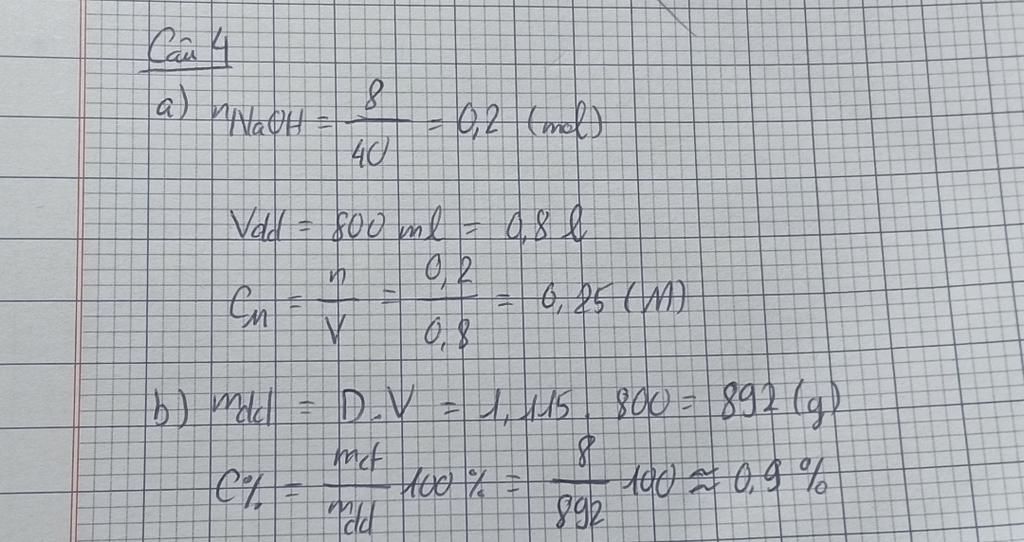 Câu 4
a) nNaOH = 8/40 = 0,2 (mol)
Vdd = 800 ml = 0,8 l
CM = n/V = 0,2/0,8 = 0,25 (M)
b) mdd = D.V = 1,115. 800 = 892 (g)
C% = mct/mdd 100% = 8/892 100 ≈ 0,9 %